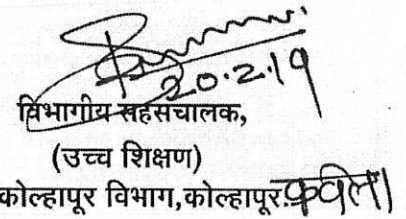 20.2.19
विभागीय सहसंचालक,
(उच्च शिक्षण)
कोल्हापूर विभाग,कोल्हापूर.